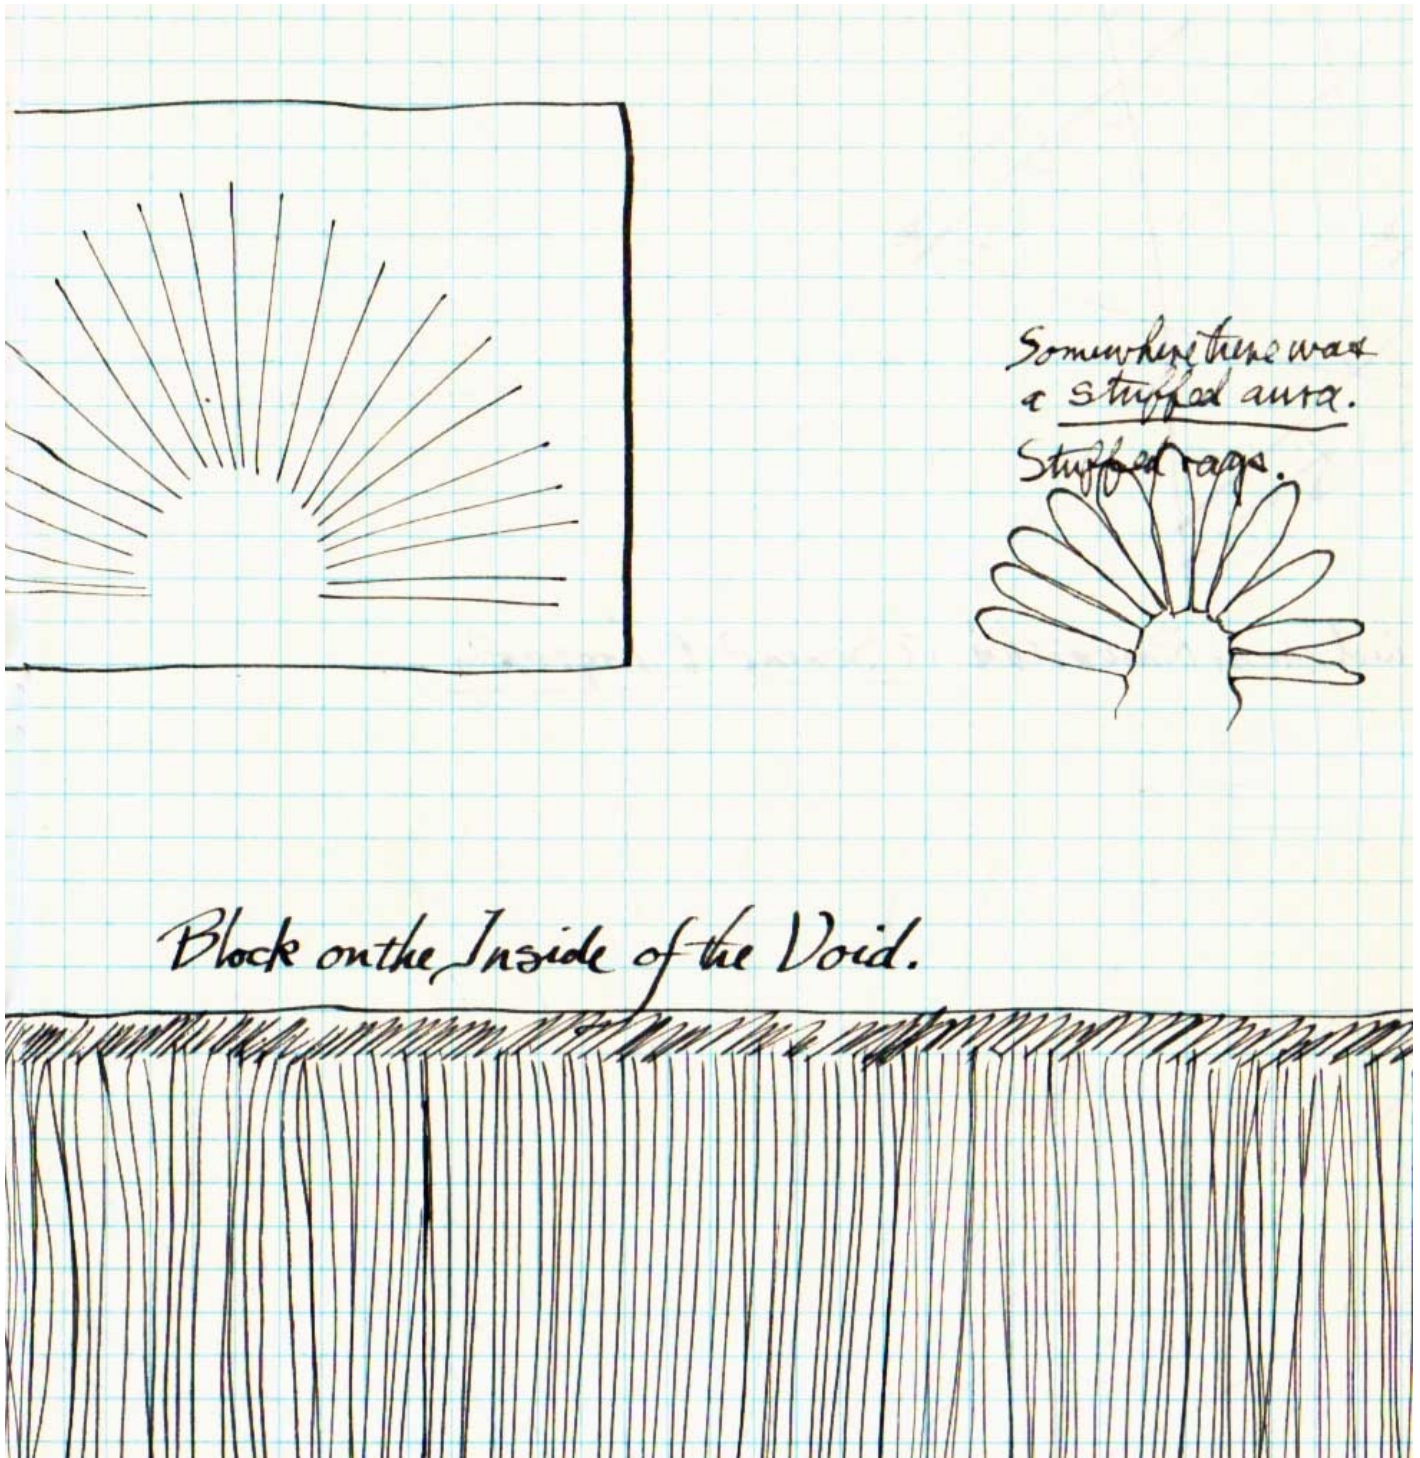 Somewhere there was
a stuffed aura.
Stuffed rays.
Block on the Inside of the Void.